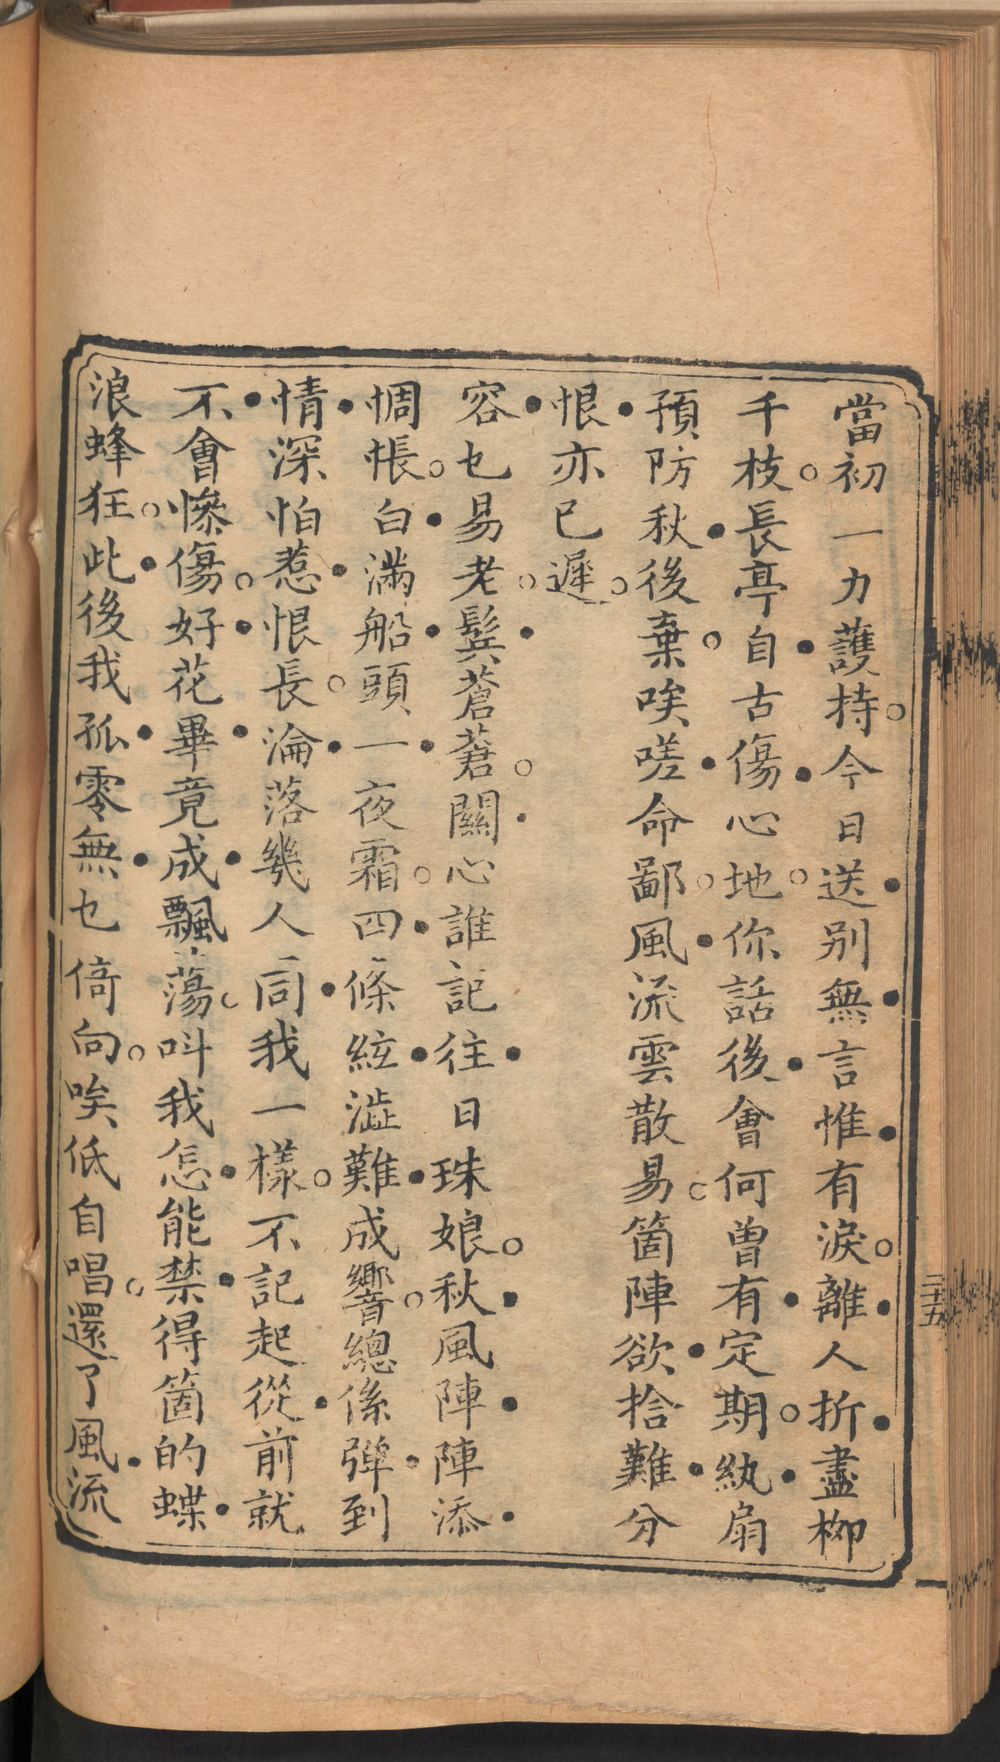 當初一力護持今日送别無言惟有淚離人折盡柳
千枝長亭自古傷心地你話後會何曾有定期紈扇
預防秋後棄唉嗟命鄙風流雲散易箇陣欲捨難分
恨亦已遲
容乜易老鬂蒼蒼關心誰記往日珠娘秋風陣陣添
惆悵白滿船頭一夜霜四條絃澁難成響總係彈到
情深怕惹恨長淪落幾人同我一樣不記起從前就
不會慘傷好花畢竟成飄蕩叫我怎能禁得箇的蝶
浪蜂狂此後我孤零無乜倚向唉低自唱還了風流
二十五